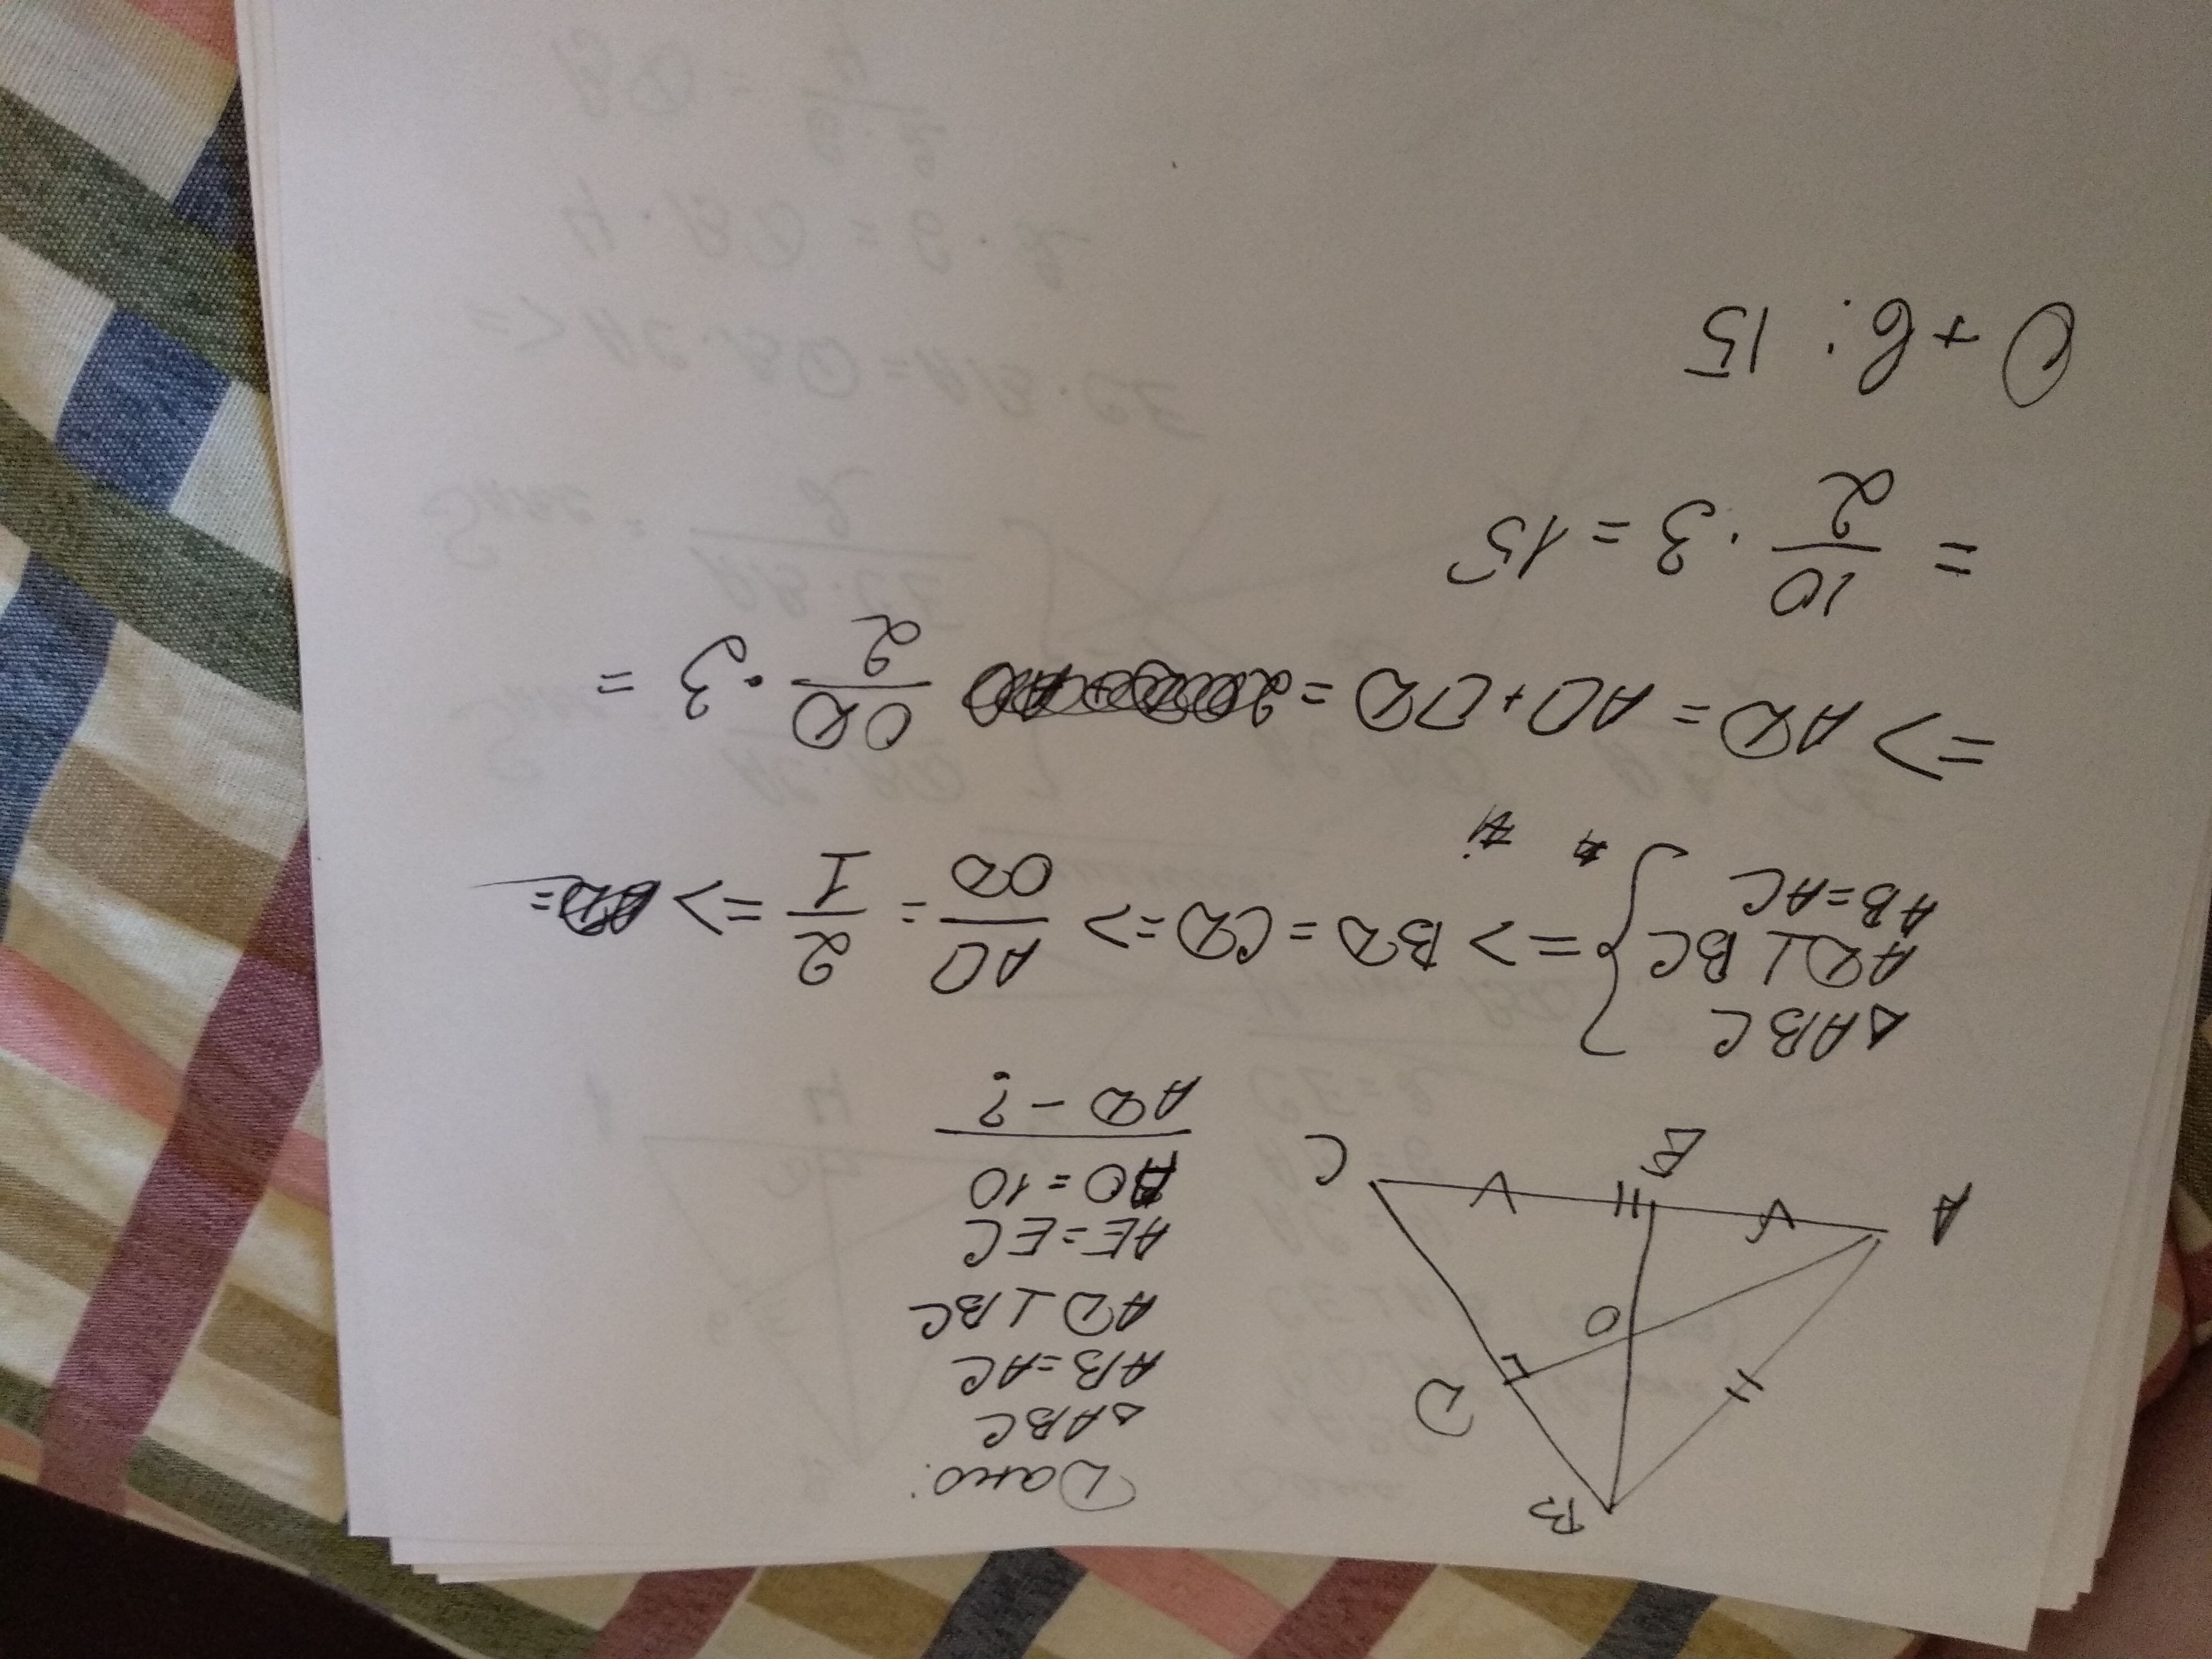 B
D
O
A
E
C
Дано:
△ABC
AB=AC
AD⊥BC
AE=EC
AO=10
AD-?
△ABC
AD⊥BC
AB=AC
=> BD=CD => AO/OD = 2/1 =>
=> AD = AO+OD = OD/2 · 3 =
= 10/2 · 3 = 15
Отв: 15